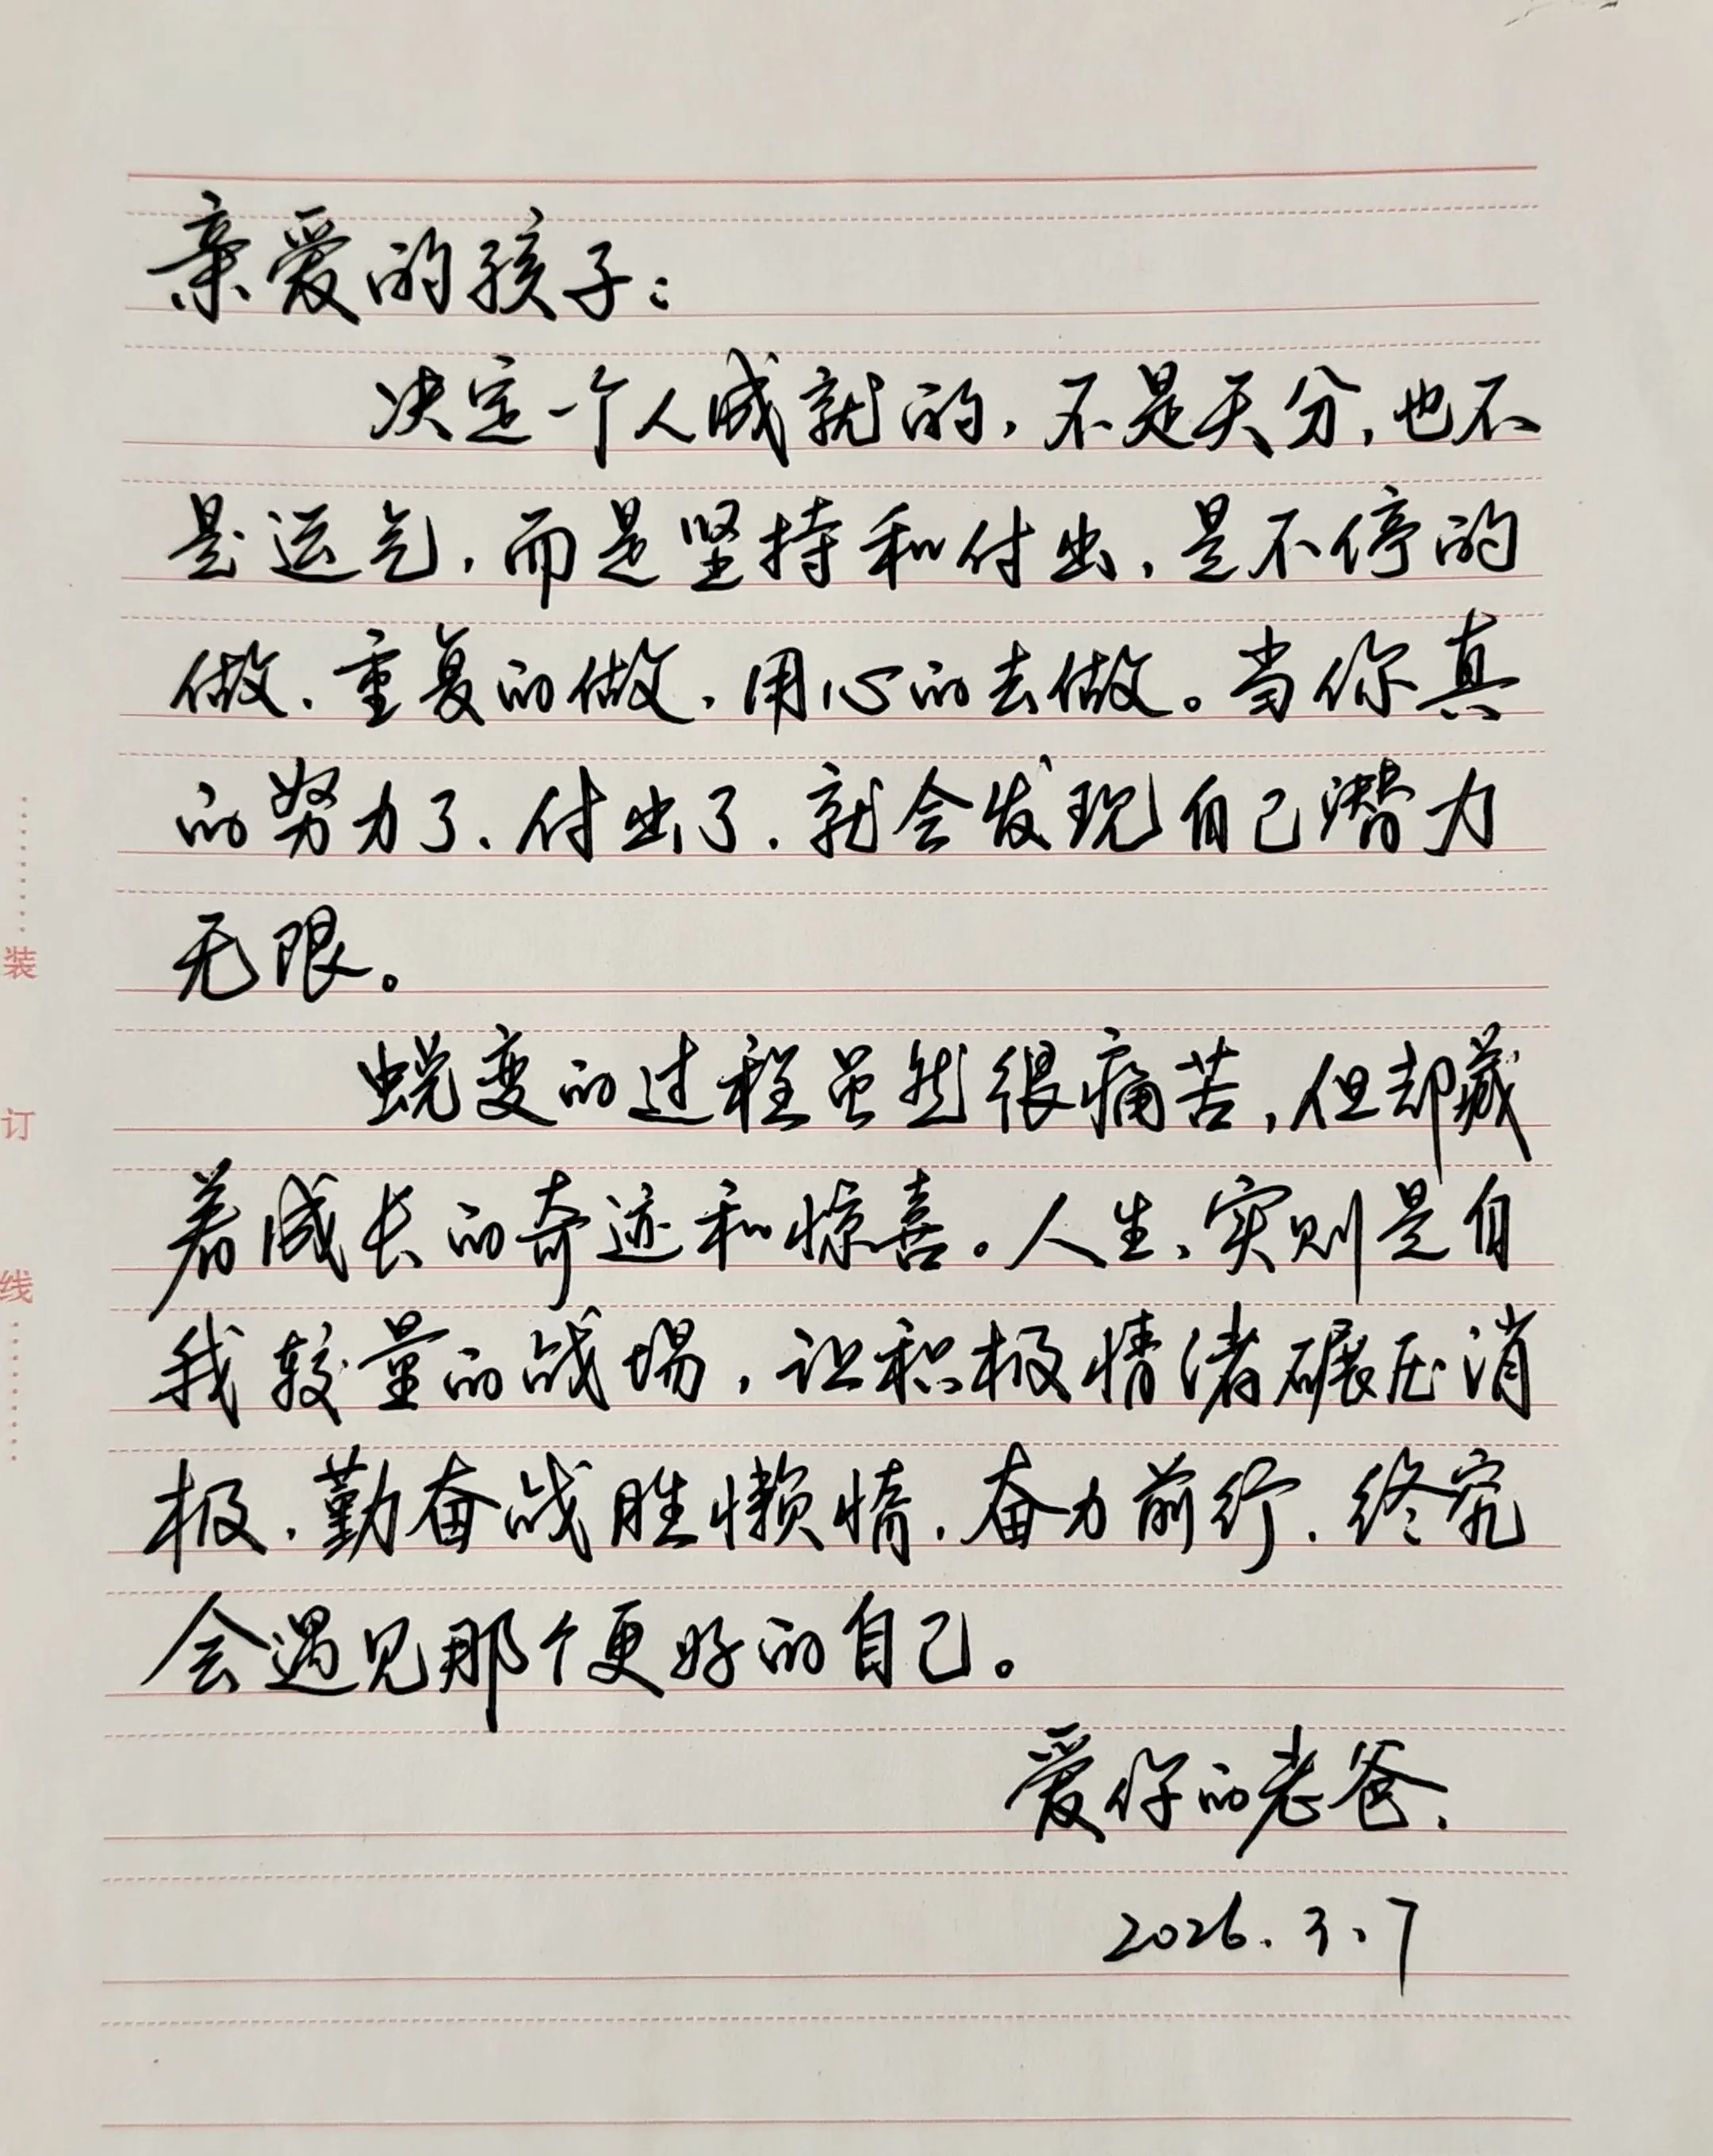 亲爱的孩子：
决定一个人成就的，不是天分，也不
是运气，而是坚持和付出，是不停的
做、重复的做，用心的去做。当你真
的努力了、付出了，就会发现自己潜力
无限。
蜕变的过程虽然很痛苦，但却藏
着成长的奇迹和惊喜。人生、实则是自
我较量的战场，让积极情绪碾压消
极，勤奋战胜懒惰，奋力前行，终究
会遇见那个更好的自己。
爱你的老爸、
2026.3、7
装
订
线